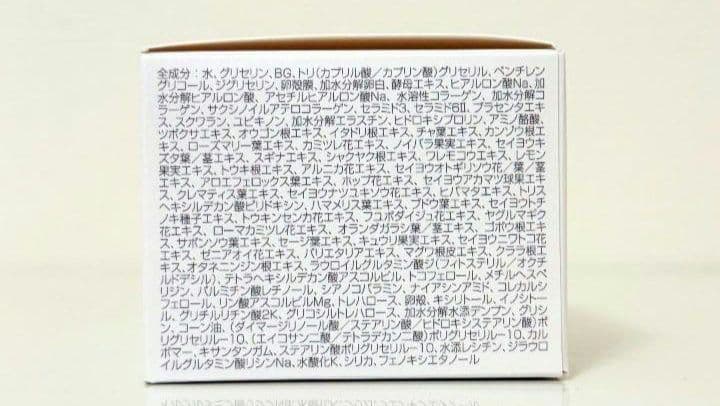 全成分：水、グリセリン、BG、トリ(カプリル酸／カプリン酸)グリセリル、ペンチレン
グリコール、ジグリセリン、卵殻膜、加水分解卵白、酵母エキス、ヒアルロン酸Na、加
水分解ヒアルロン酸、アセチルヒアルロン酸Na、水溶性コラーゲン、加水分解コ
ラーゲン、サクシノイルアテロコラーゲン、セラミド3、セラミド6Ⅱ、プラセンタエキ
ス、スクワラン、ユビキノン、加水分解エラスチン、ヒドロキシプロリン、アミノ酪酸、
ツボクサエキス、オウゴン根エキス、イタドリ根エキス、チャ葉エキス、カンゾウ根エキ
ス、ローズマリー葉エキス、カミツレ花エキス、ノイバラ果実エキス、セイヨウキ
ズタ葉／茎エキス、スギナエキス、シャクヤク根エキス、ワレモコウエキス、レモン
果実エキス、トウキ根エキス、アルニカ花エキス、セイヨウオトギリソウ花／葉／茎
エキス、アロエフェロックス葉エキス、ホップ花エキス、セイヨウアカマツ球果エキ
ス、クレマティス葉エキス、セイヨウナツユキソウ花エキス、ヒバマタエキス、トリス
ヘキシルデカン酸ピリドキシン、ハマメリス葉エキス、ブドウ葉エキス、セイヨウトチ
ノキ種子エキス、トウキンセンカ花エキス、フユボダイジュ花エキス、ヤグルマギク
花エキス、ローマカミツレ花エキス、オランダガラシ葉／茎エキス、ゴボウ根エキ
ス、サボンソウ葉エキス、セージ葉エキス、キュウリ果実エキス、セイヨウニワトコ花
エキス、ゼニアオイ花エキス、パリエタリアエキス、マグワ根皮エキス、クララ根エ
キス、オタネニンジン根エキス、ラウロイルグルタミン酸ジ(フィトステリル／オクチ
ルドデシル)、テトラヘキシルデカン酸アスコルビル、トコフェロール、メチルヘスペ
リジン、パルミチン酸レチノール、シアノコバラミン、ナイアシンアミド、コレカルシ
フェロール、リン酸アスコルビルMg、トレハロース、卵殻、キシリトール、イノシトー
ル、グリチルリチン酸2K、グリコシルトレハロース、加水分解水添デンプン、グリシ
ン、コーン油、(ダイマージリノール酸／ステアリン酸／ヒドロキシステアリン酸)ポ
リグリセリル－10、(エイコサン二酸／テトラデカン二酸)ポリグリセリル－10、カル
ボマー、キサンタンガム、ステアリン酸ポリグリセリル－10、水添レシチン、ジラウロ
イルグルタミン酸リシンNa、水酸化K、シリカ、フェノキシエタノール